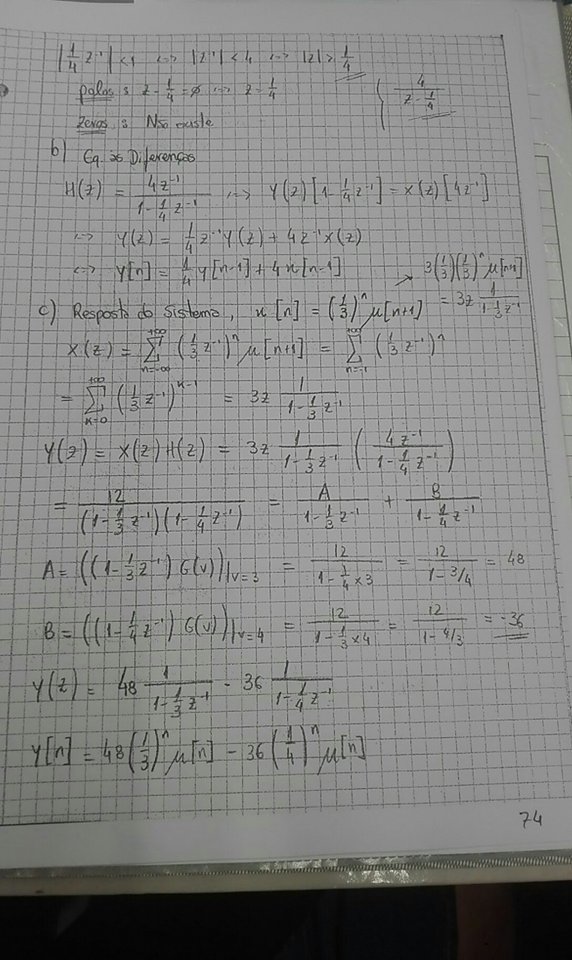 |1/4 z⁻¹| < 1 ↔ |z⁻¹| < 4 ↔ |z| > 1/4
polos: z - 1/4 = 0 ↔ z = 1/4 { 4/(z - 1/4)
zeros: Não existe
b) Eq. às Diferenças
H(z) = 4z⁻¹/(1 - 1/4 z⁻¹) ↔ Y(z)[1 - 1/4 z⁻¹] = X(z)[4z⁻¹]
↔ Y(z) = 1/4 z⁻¹ Y(z) + 4z⁻¹ X(z)
↔ y[n] = 1/4 y[n-1] + 4x[n-1]
→ 3(1/3)(1/3)ⁿ μ[n+1]
c) Resposta do Sistema, x[n] = (1/3)ⁿ μ[n+1] = 3z 1/(1 - 1/3 z⁻¹)
X(z) = Σ_{n=-∞}^{+∞} (1/3 z⁻¹)ⁿ μ[n+1] = Σ_{n=-1}^{+∞} (1/3 z⁻¹)ⁿ
= Σ_{k=0}^{+∞} (1/3 z⁻¹)^{k-1} = 3z 1/(1 - 1/3 z⁻¹)
Y(z) = X(z)H(z) = 3z 1/(1 - 1/3 z⁻¹) (4z⁻¹/(1 - 1/4 z⁻¹))
= 12/((1 - 1/3 z⁻¹)(1 - 1/4 z⁻¹)) = A/(1 - 1/3 z⁻¹) + B/(1 - 1/4 z⁻¹)
A = ((1 - 1/3 z⁻¹) G(v))|v=3 = 12/(1 - 1/4 × 3) = 12/(1 - 3/4) = 48
B = ((1 - 1/4 z⁻¹) G(v))|v=4 = 12/(1 - 1/3 × 4) = 12/(1 - 4/3) = -36
Y(z) = 48 1/(1 - 1/3 z⁻¹) - 36 1/(1 - 1/4 z⁻¹)
y[n] = 48(1/3)ⁿ μ[n] - 36(1/4)ⁿ μ[n]
74